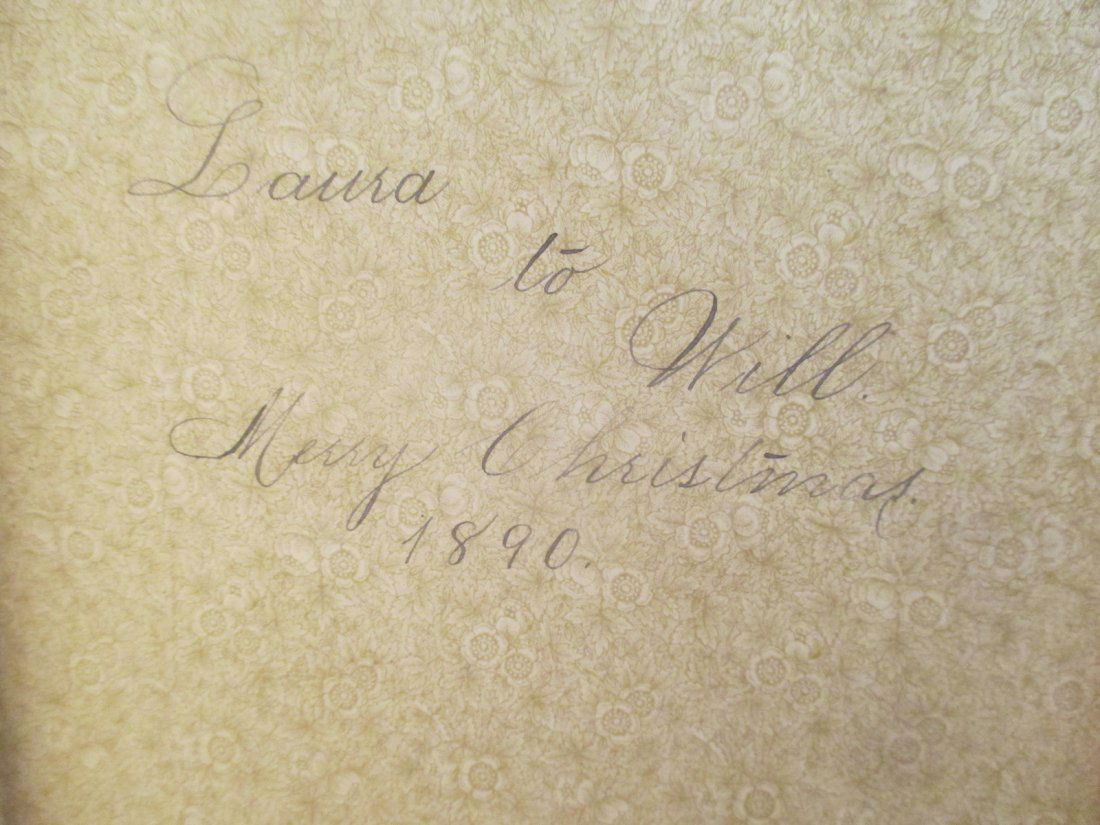 Laura
to
Will.
Merry Christmas.
1890.